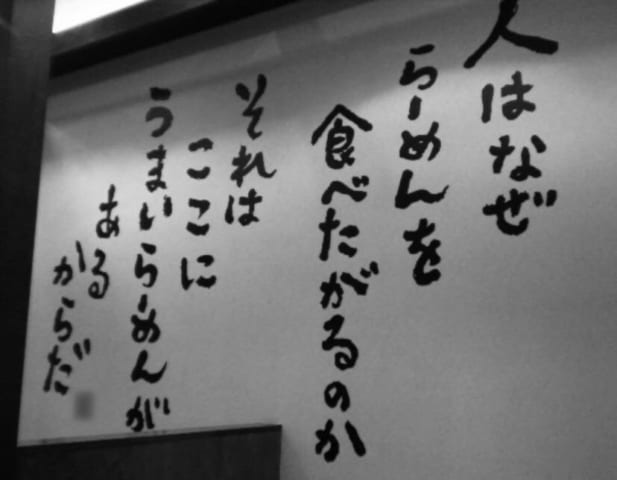 人はなぜ
らーめんを
食べたがるのか
それは
ここに
うまいらーめんが
ある
からだ